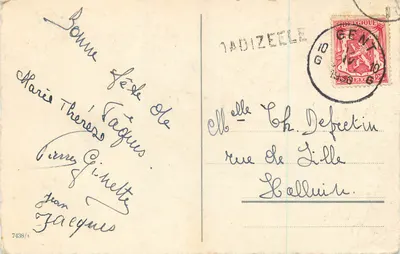 Bonne
fête de
Pâques
Marie Thérèse
Pierre Ginette
Jean
Jacques
7438/1
DADIZEELE
GENT
G 10
10 G
1936
BELGIQUE
Melle Th. Defretin
rue de Lille
Halluin.